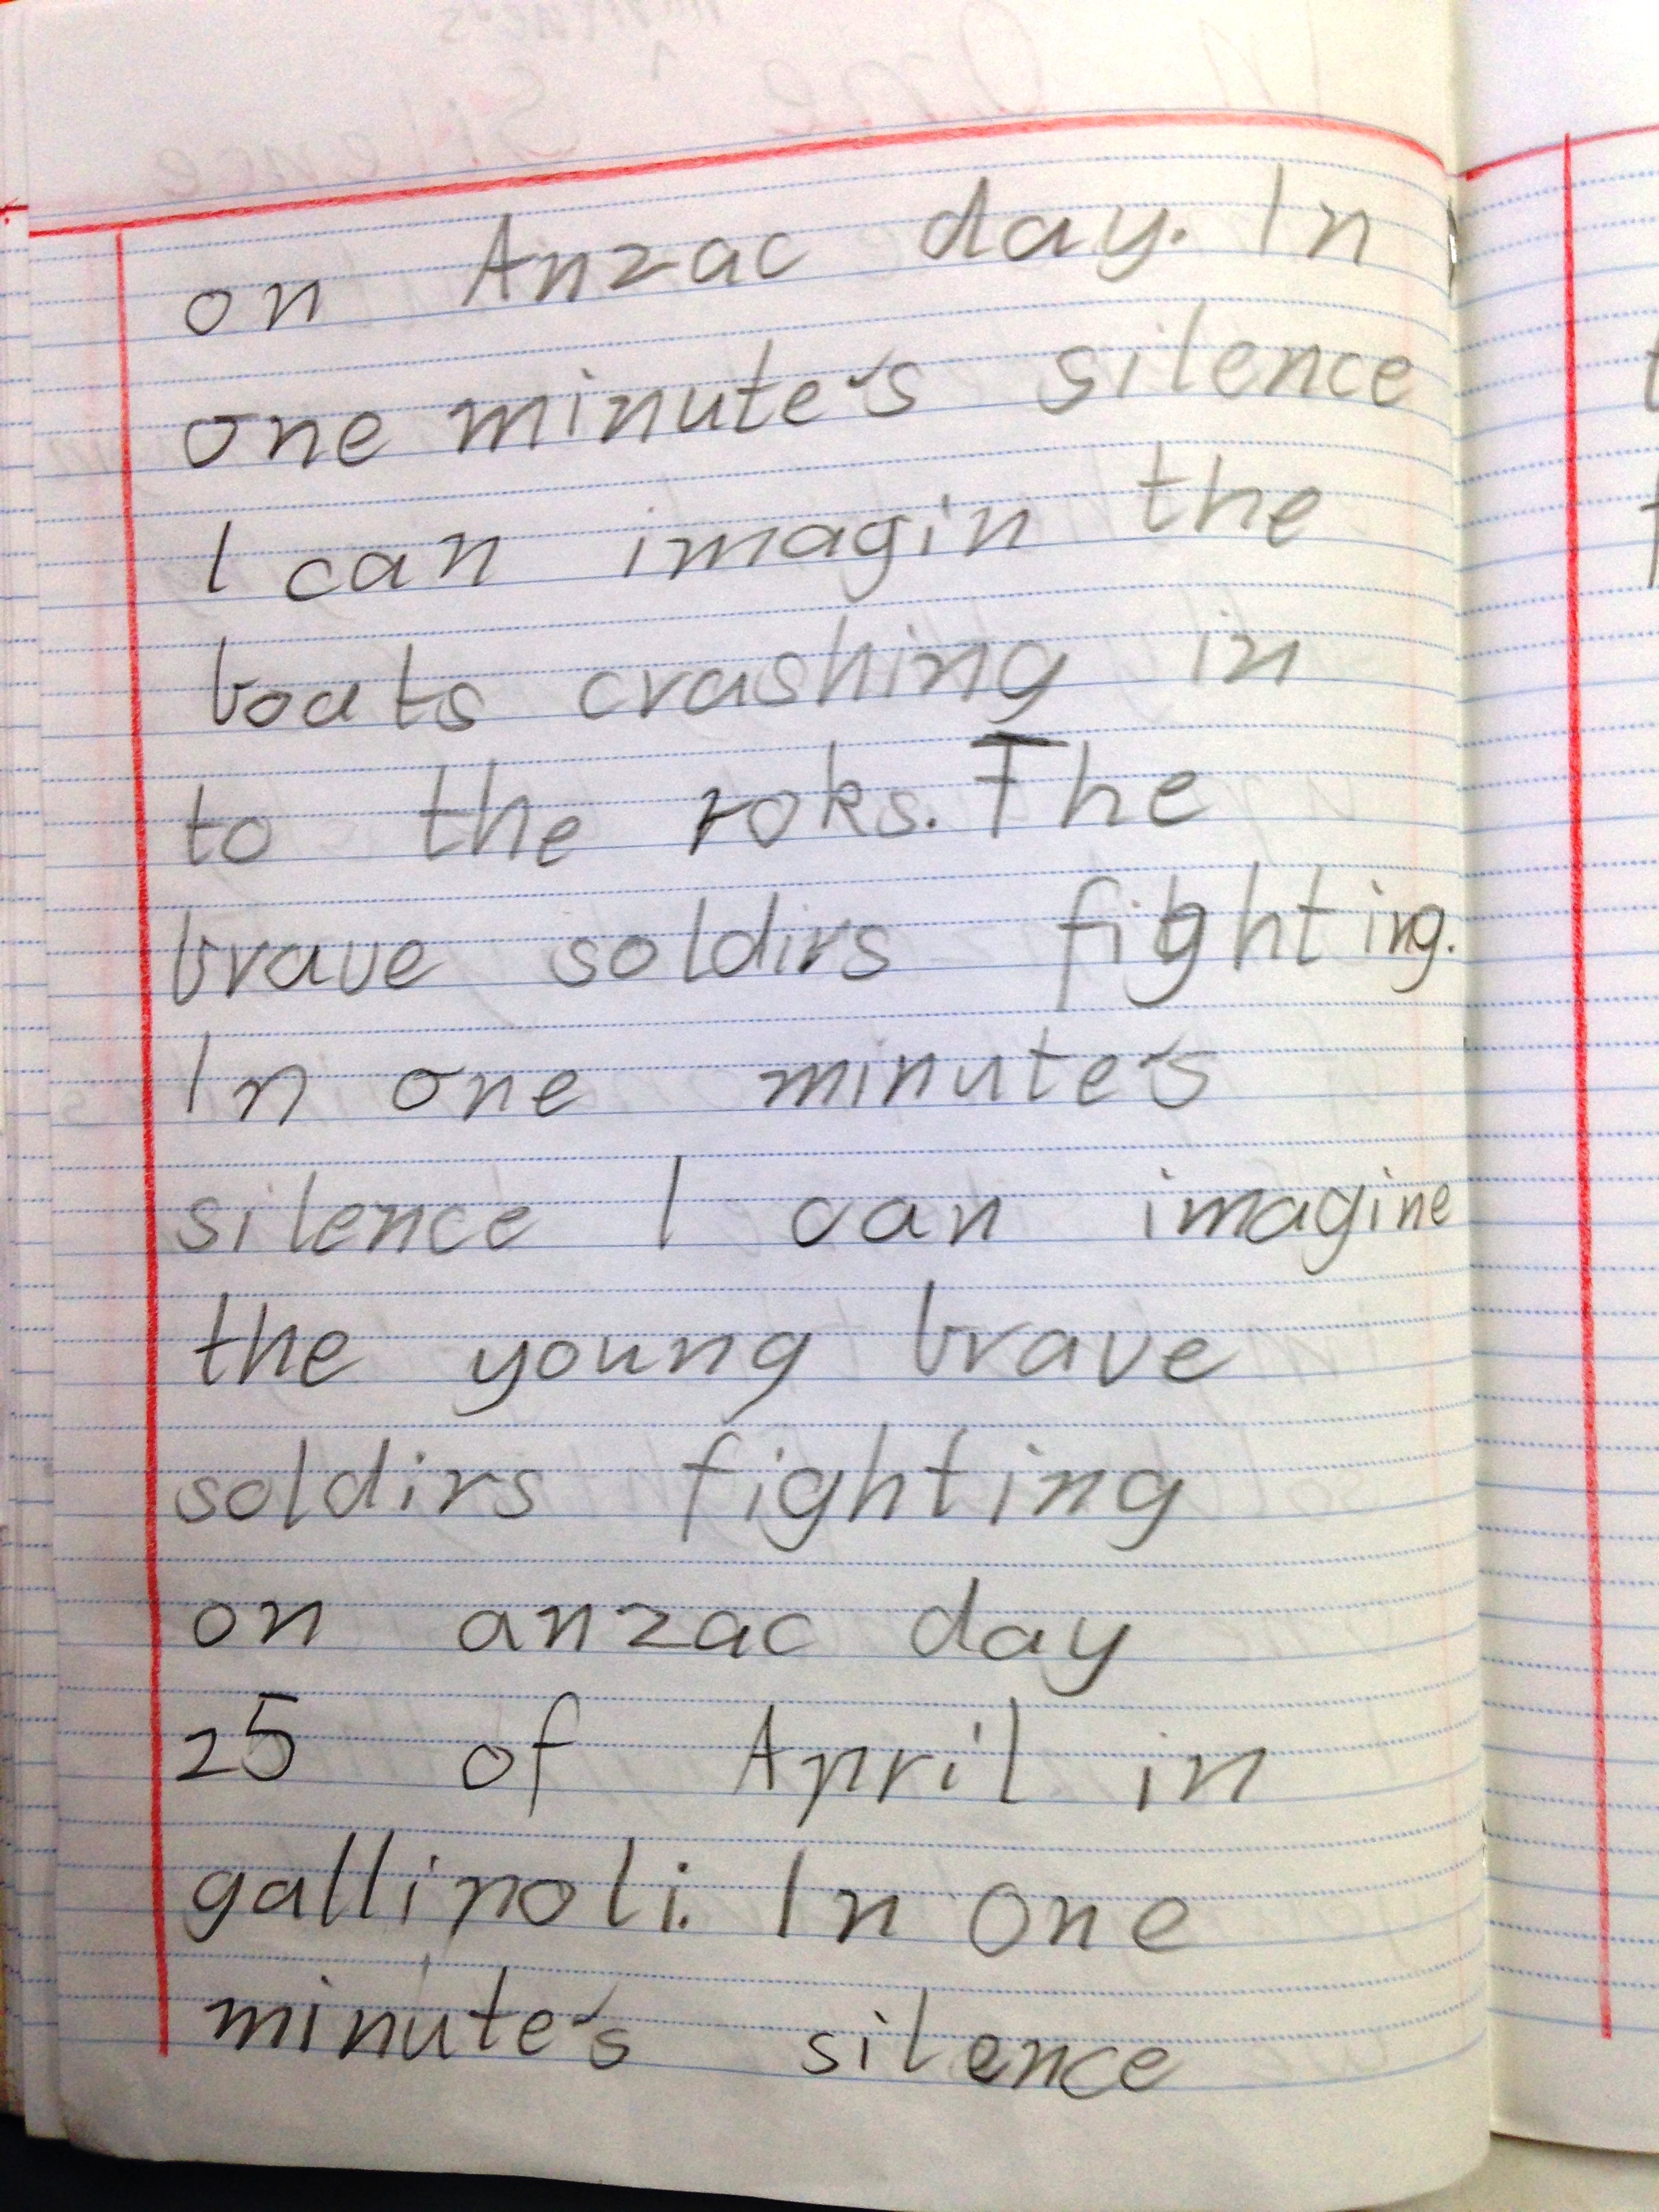 on Anzac day. In
one minute's silence
I can imagin the
boats crashing in
to the roks. The
brave soldirs fighting.
In one minute's
silence I can imagine
the young brave
soldirs fighting
on anzac day
25 of April in
gallipoli. In one
minute's silence